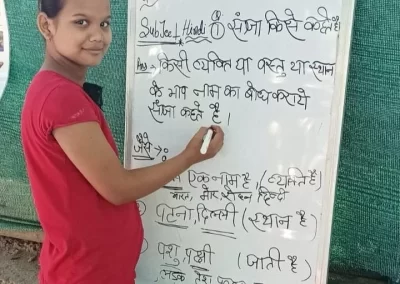 Subject Hindi ① संज्ञा किसे कहते है
Ans किसी व्यक्ति या वस्तु या स्थान
के भाव नाम का बोध कराये
संज्ञा कहते है ।
जैसे →:
एक नाम है (व्यक्ति है)
भारत,
पटना, दिल्ली (स्थान है)
पशु, पक्षी (जाती है)